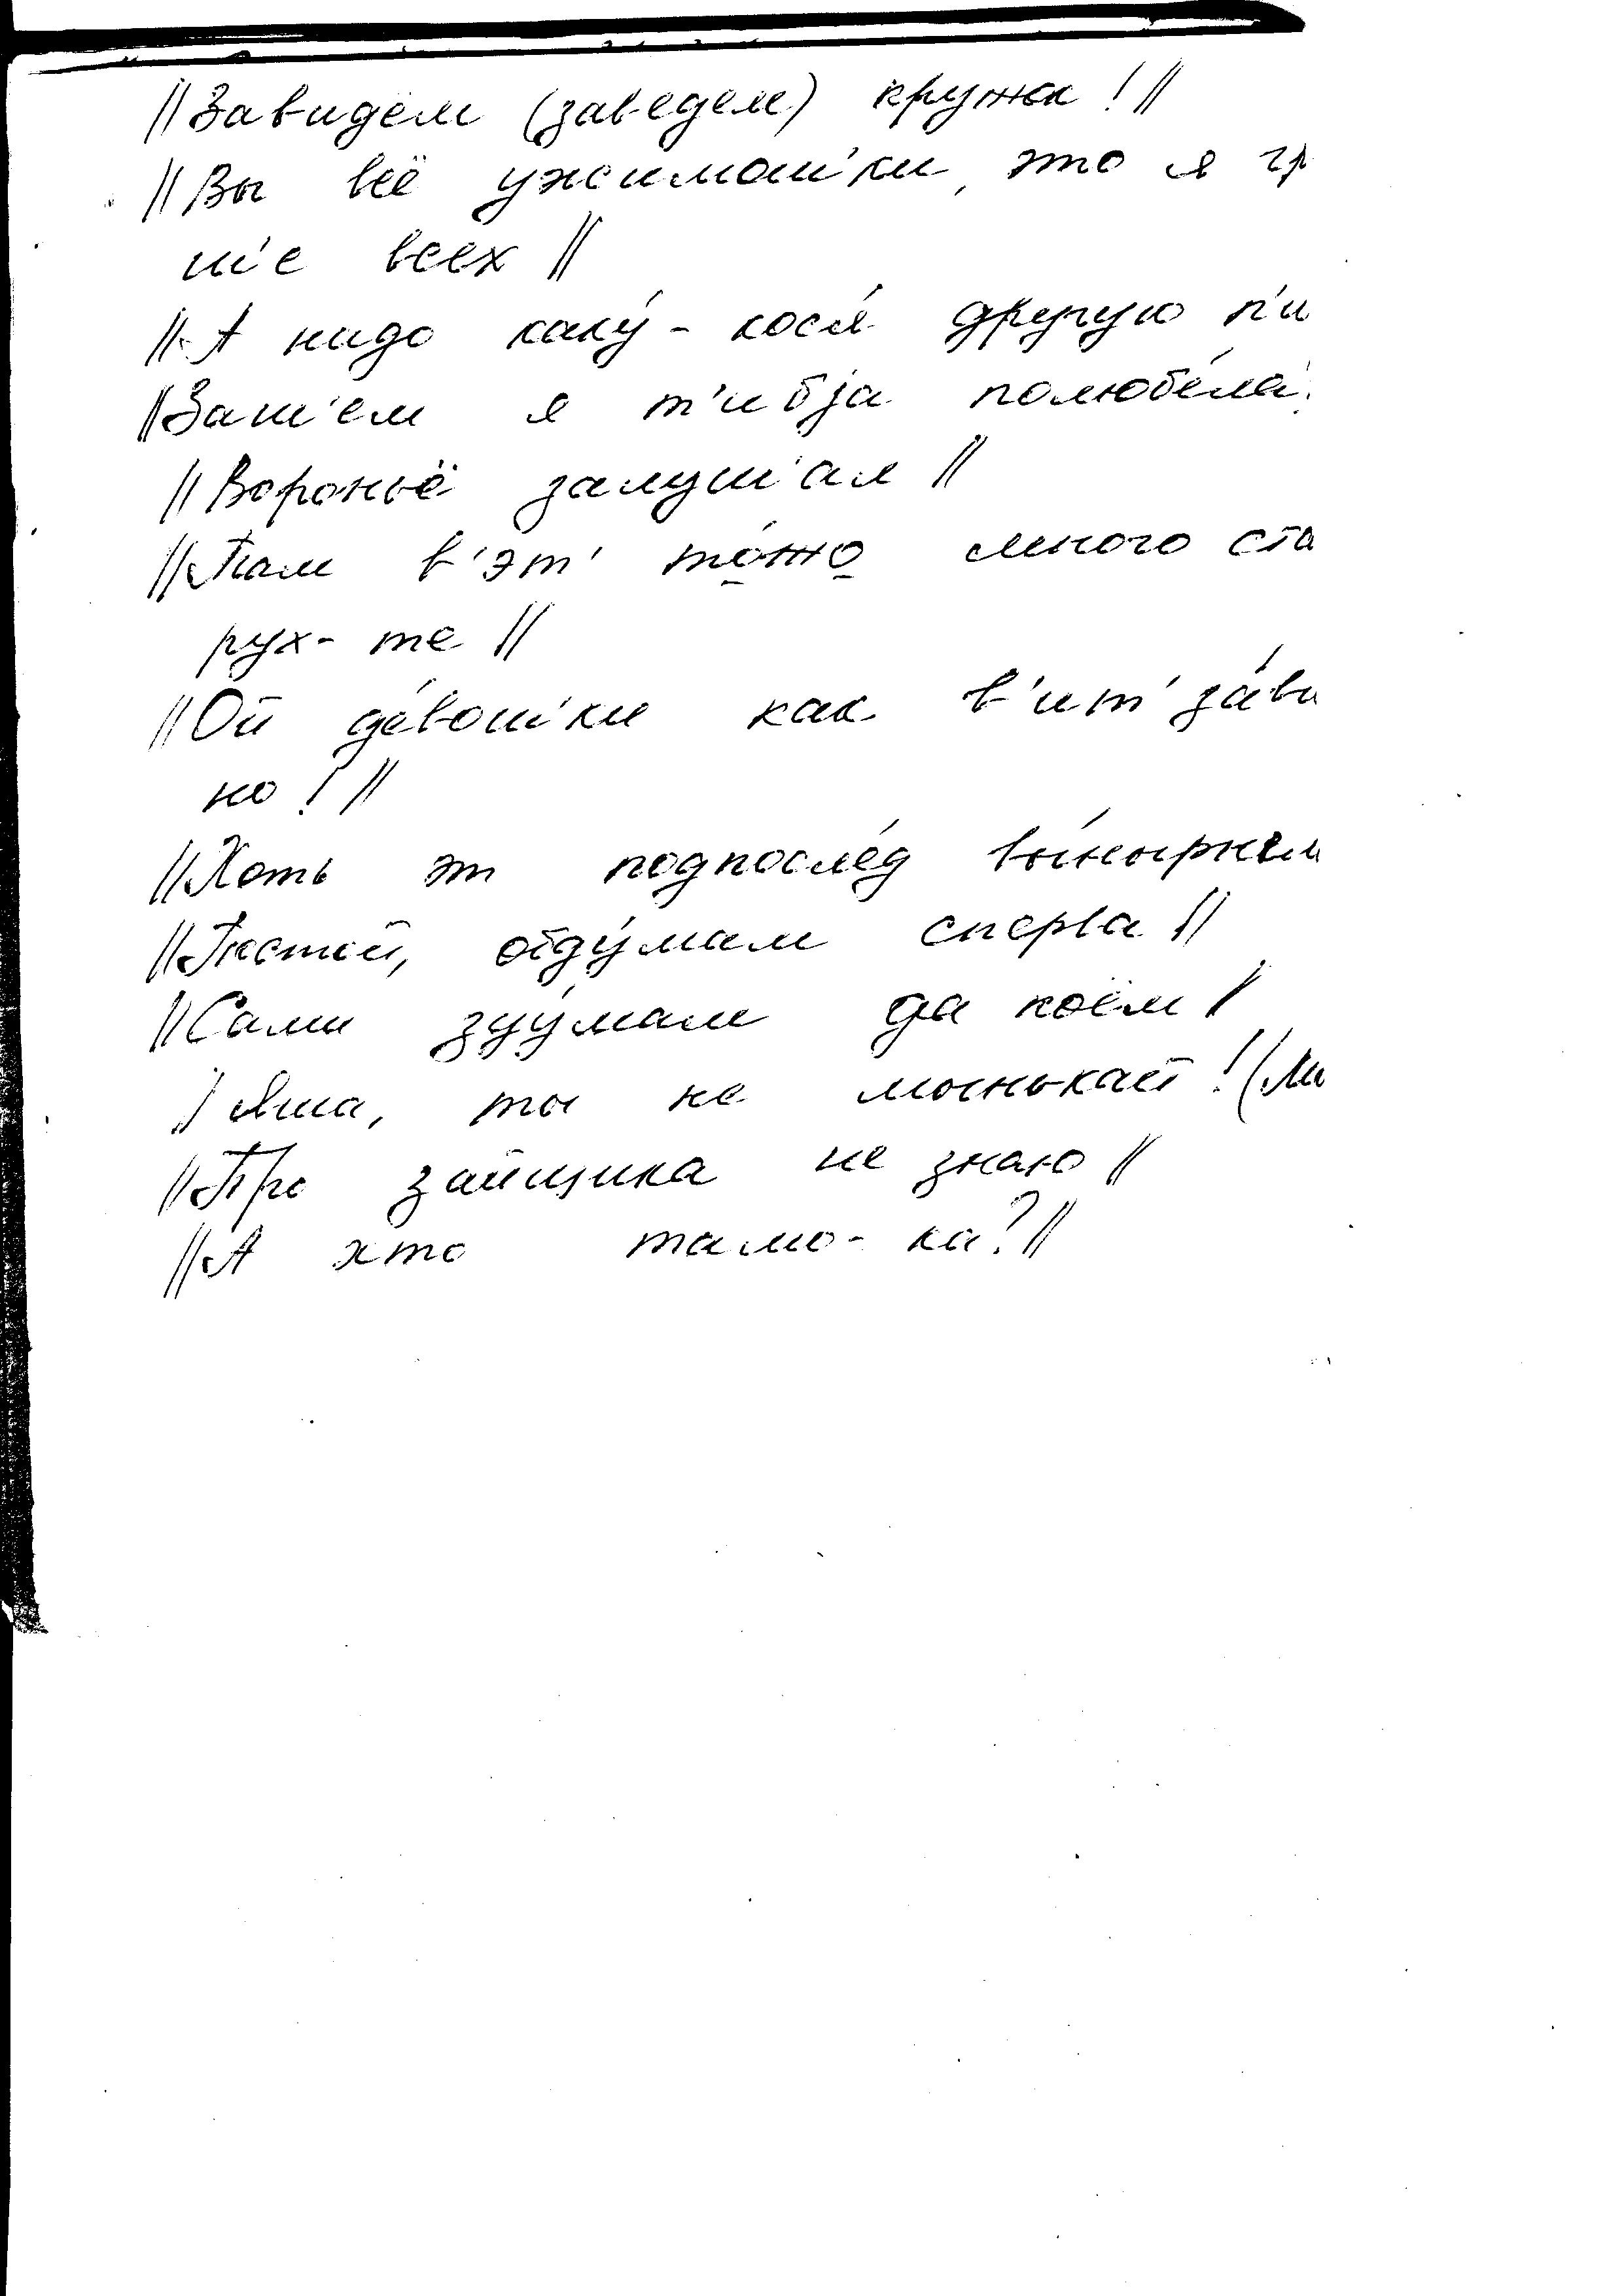 //Завидём (заведем) кружка!//
//Вы всё ужимаш'ки, это я гр
ш'е всех//
//А нидо каку́-кося́ другую п'и
//Заш'ем я т'ибjа полюбе́ла
//Вороньё залуш'ал//
//Там в'эт' то́жно много ста
рух-те//
//Ой де́вош'ки как в'ит' за́ви
но!//
//Хоть эт подпосле́д вы́нырнем
//Постой, обду́мам сперва//
//Сами зду́мам да поём//
//Яша, ты не монькай! (Ми
//Про зайщика не знаю//
//А хто тамо-ка?//